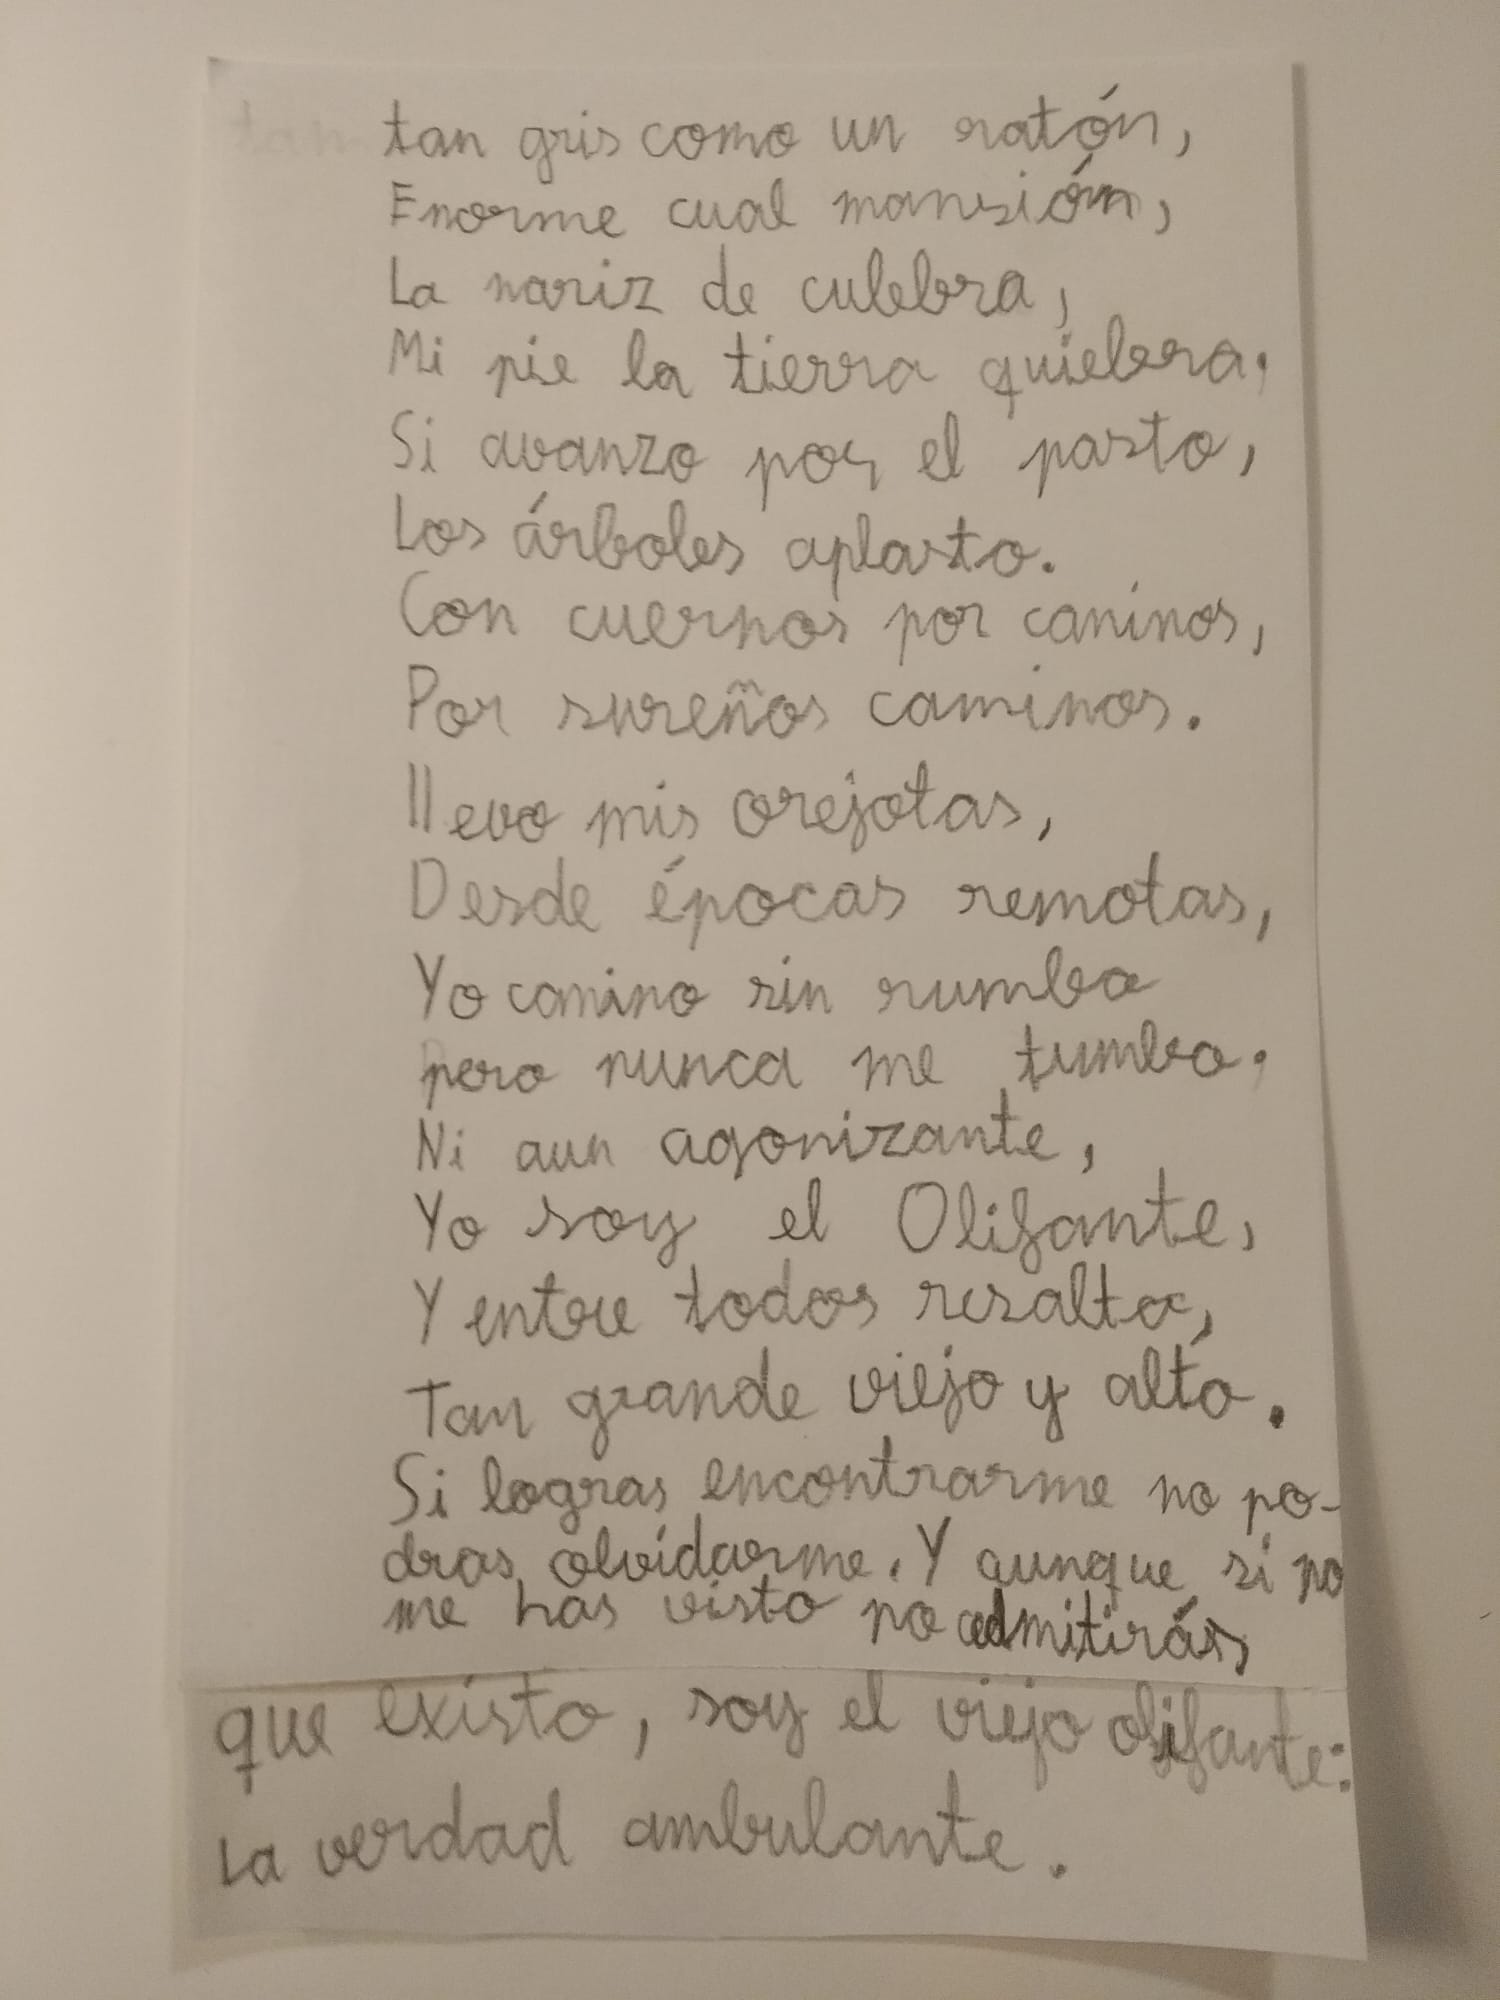 tan gris como un ratón,
Enorme cual mansión,
La nariz de culebra,
Mi pie la tierra quiebra;
Si avanzo por el pasto,
Los árboles aplasto.
Con cuernos por caninos,
Por sureños caminos.
llevo mis orejotas,
Desde épocas remotas,
Yo camino sin rumbo
pero nunca me tumbo;
Ni aun agonizante,
Yo soy el Olifante,
Y entre todos resalto,
Tan grande viejo y alto.
Si logras encontrarme no po-
dras olvidarme. Y aunque si no
me has visto no admitirás
que existo, soy el viejo olifante:
La verdad ambulante.